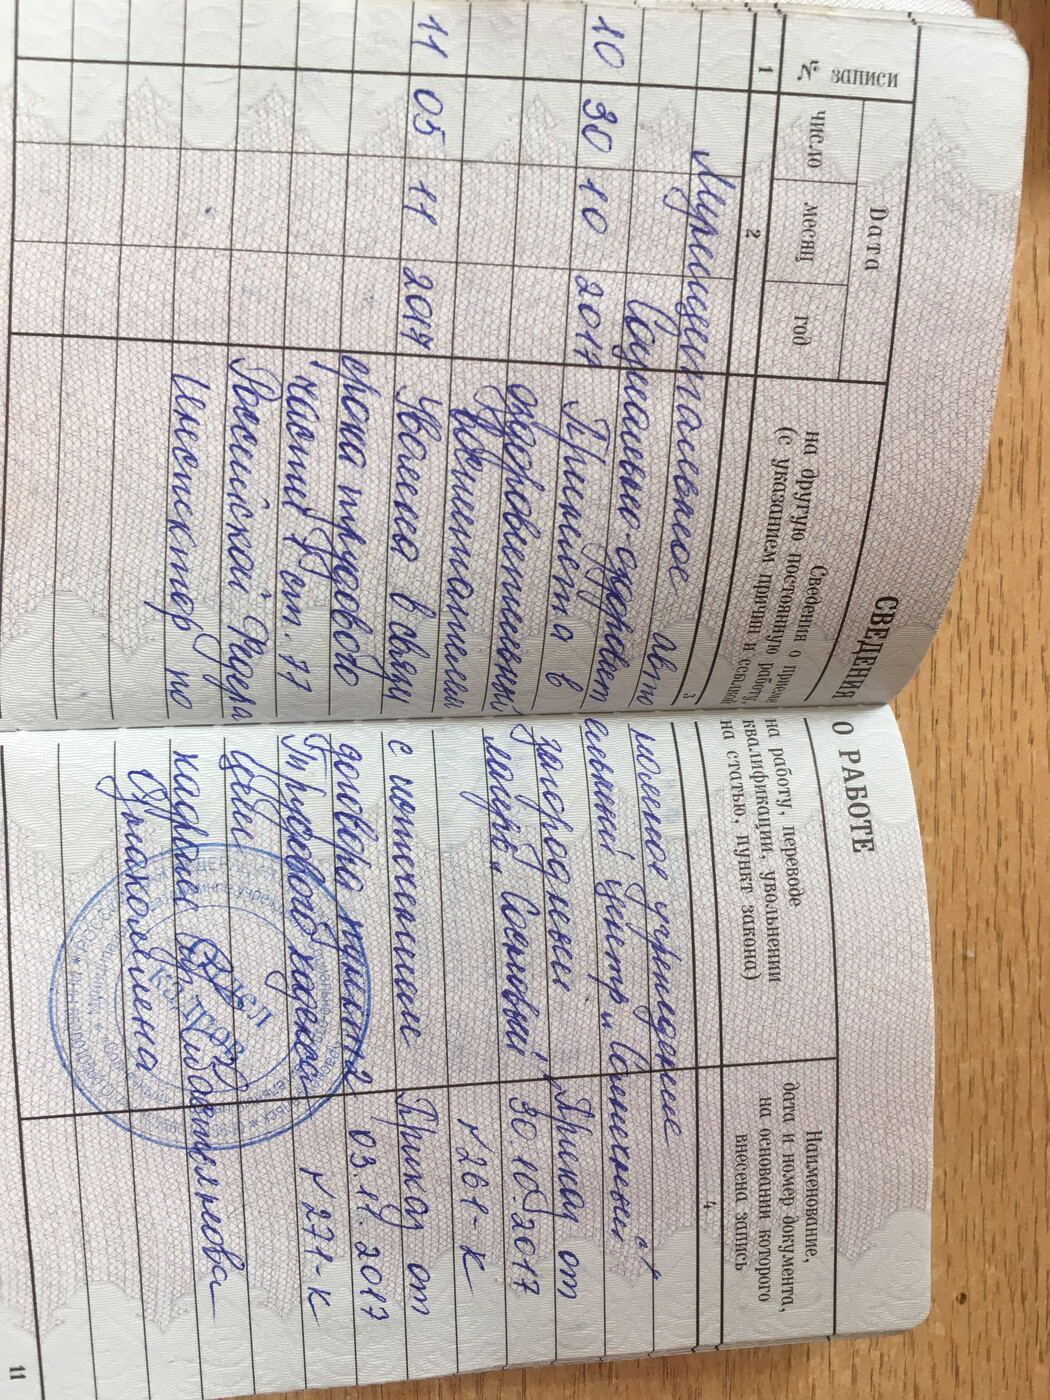 СВЕДЕНИЯ О РАБОТЕ
№ записи
Дата
число
месяц
год
Сведения о приеме на работу, переводе
на другую постоянную работу, квалификации, увольнении
(с указанием причин и ссылкой на статью, пункт закона)
Наименование,
дата и номер документа,
на основании которого
внесена запись
1 2 3 4
Муниципальное автономное учреждение
Социально-оздоровительный центр "Солнечный"
10 30 10 2017 Принята в загородный Приказ от
оздоровительный лагерь "Солнечный" 30.10.2017
№261-К
11 05 11 2017 Уволена в связи с истечением Приказ от
срока трудового договора пункт 2 03.11.2017
части 1 ст. 77 Трудового кодекса №271-К
Российской Федерации
Инспектор по кадрам
Ознакомлена
11